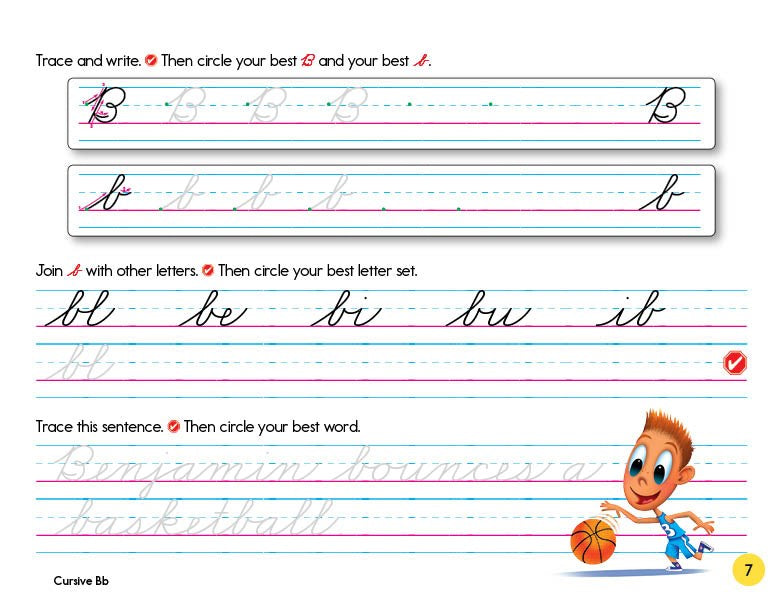 Trace and write. Then circle your best B and your best b.
B B B B B
b b b b b
Join b with other letters. Then circle your best letter set.
bl be bi bu ib
bl
Trace this sentence. Then circle your best word.
Benjamin bounces a
basketball
Cursive Bb
7